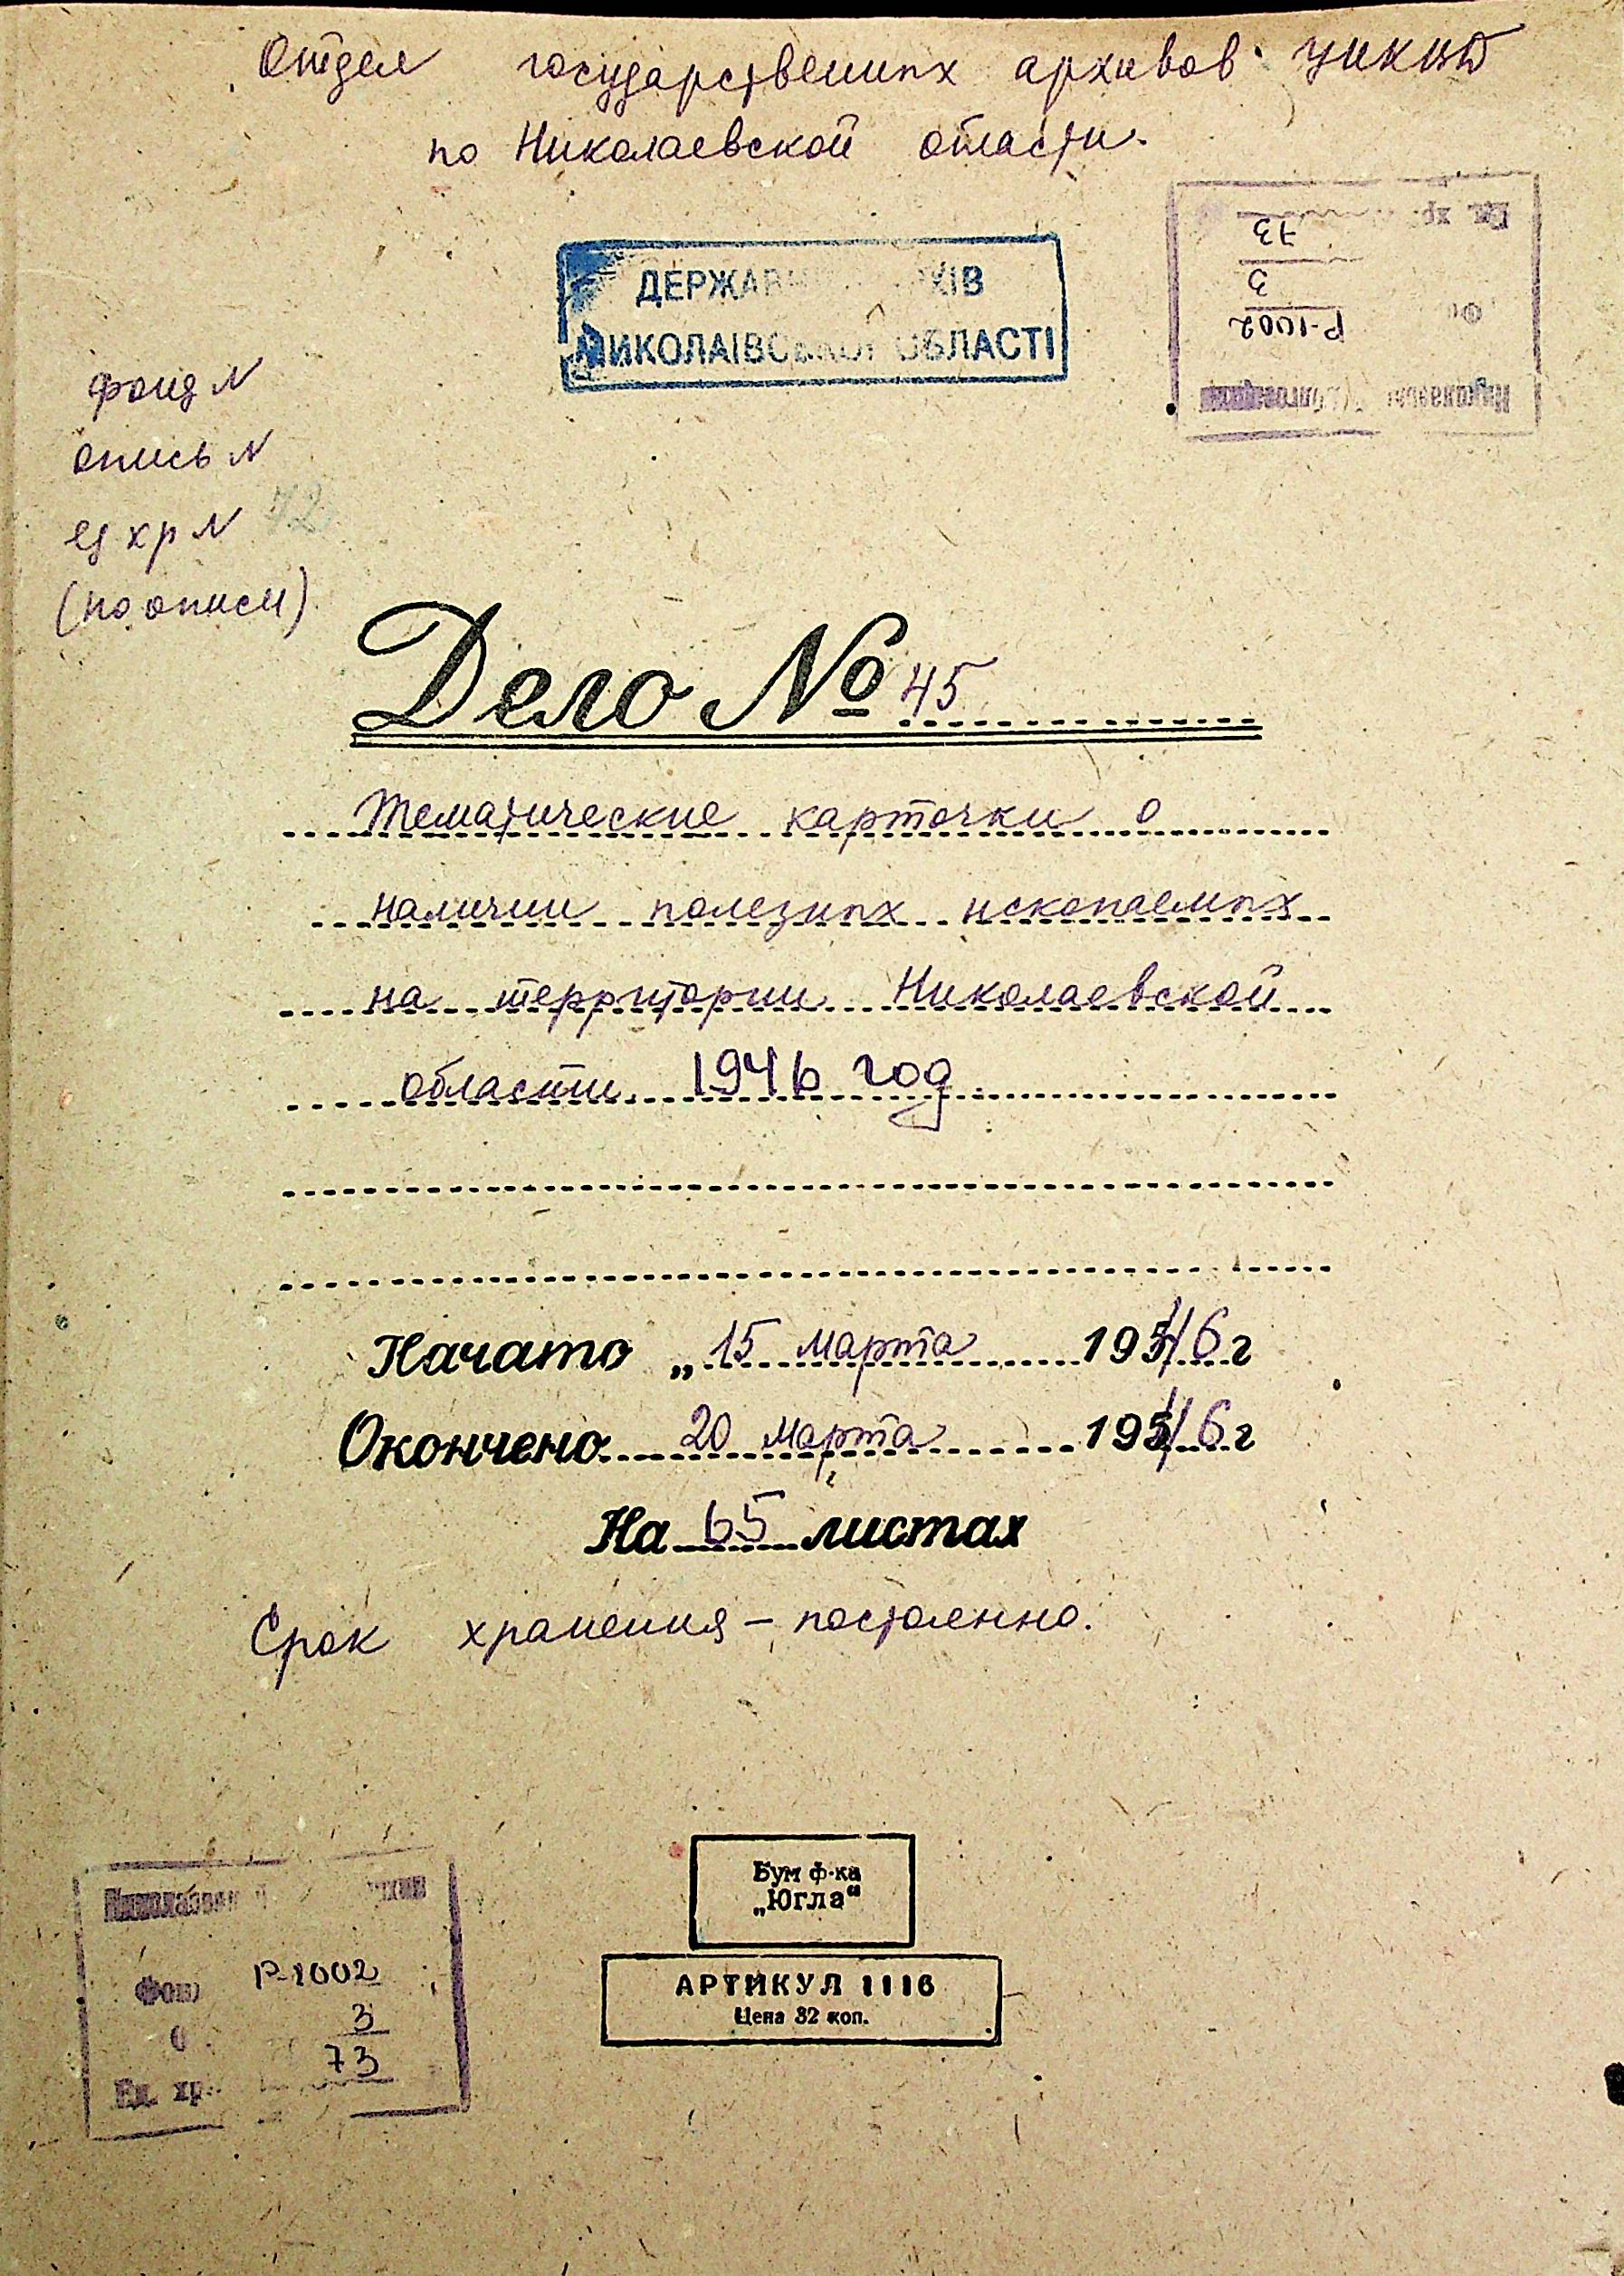 Отдел государственных архивов УНКВД
по Николаевской области.
ДЕРЖАВНИЙ АРХІВ
МИКОЛАЇВСЬКОЇ ОБЛАСТІ
Ед. хр. 73
3
Р-1002
фонд N
опись N
ед хр N 72
(по описи)
Дело № 45
Тематические карточки о
наличии полезных ископаемых
на территории Николаевской
области. 1946 год
Начато „15 марта 1946 г
Окончено 20 марта 1946 г
На 65 листах
Срок хранения – постоянно.
Бум ф-ка
„Югла“
АРТИКУЛ 1116
Цена 32 коп.
Фонд Р-1002
3
Ед. хр. 73